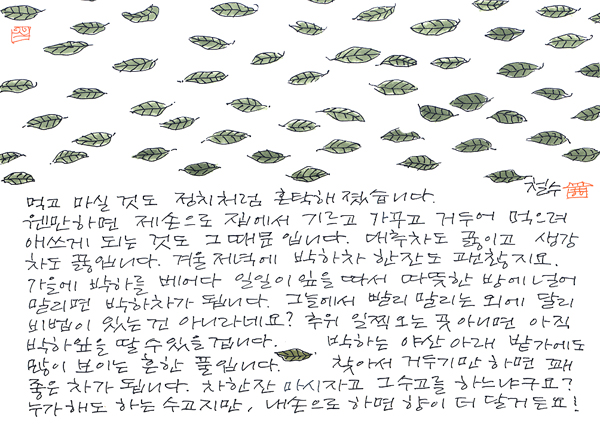 철수
먹고 마실 것도 정치처럼 혼탁해졌습니다.
웬만하면 제손으로 집에서 기르고 가꾸고 거두어 먹으려
애쓰게 되는 것도 그 때문입니다. 대추차도 끓이고 생강
차도 끓입니다. 겨울 저녁에 박하차 한잔도 괜찮지요.
가을에 박하를 베어다 일일이 잎을 따서 따뜻한 방에 널어
말리면 박하차가 됩니다. 그늘에서 빨리 말리는 외에 달리
비법이 있는건 아니라네요? 추위 일찍 오는 곳 아니면 아직
박하잎을 딸 수 있을겁니다. 박하는 야산 아래 밭가에도
많이 보이는 흔한 풀입니다. 찾아서 거두기만 하면 꽤
좋은 차가 됩니다. 차 한잔 마시자고 그 수고를 하느냐구요?
누가 해도 하는 수고지만, 내손으로 하면 향이 더 달거든요!